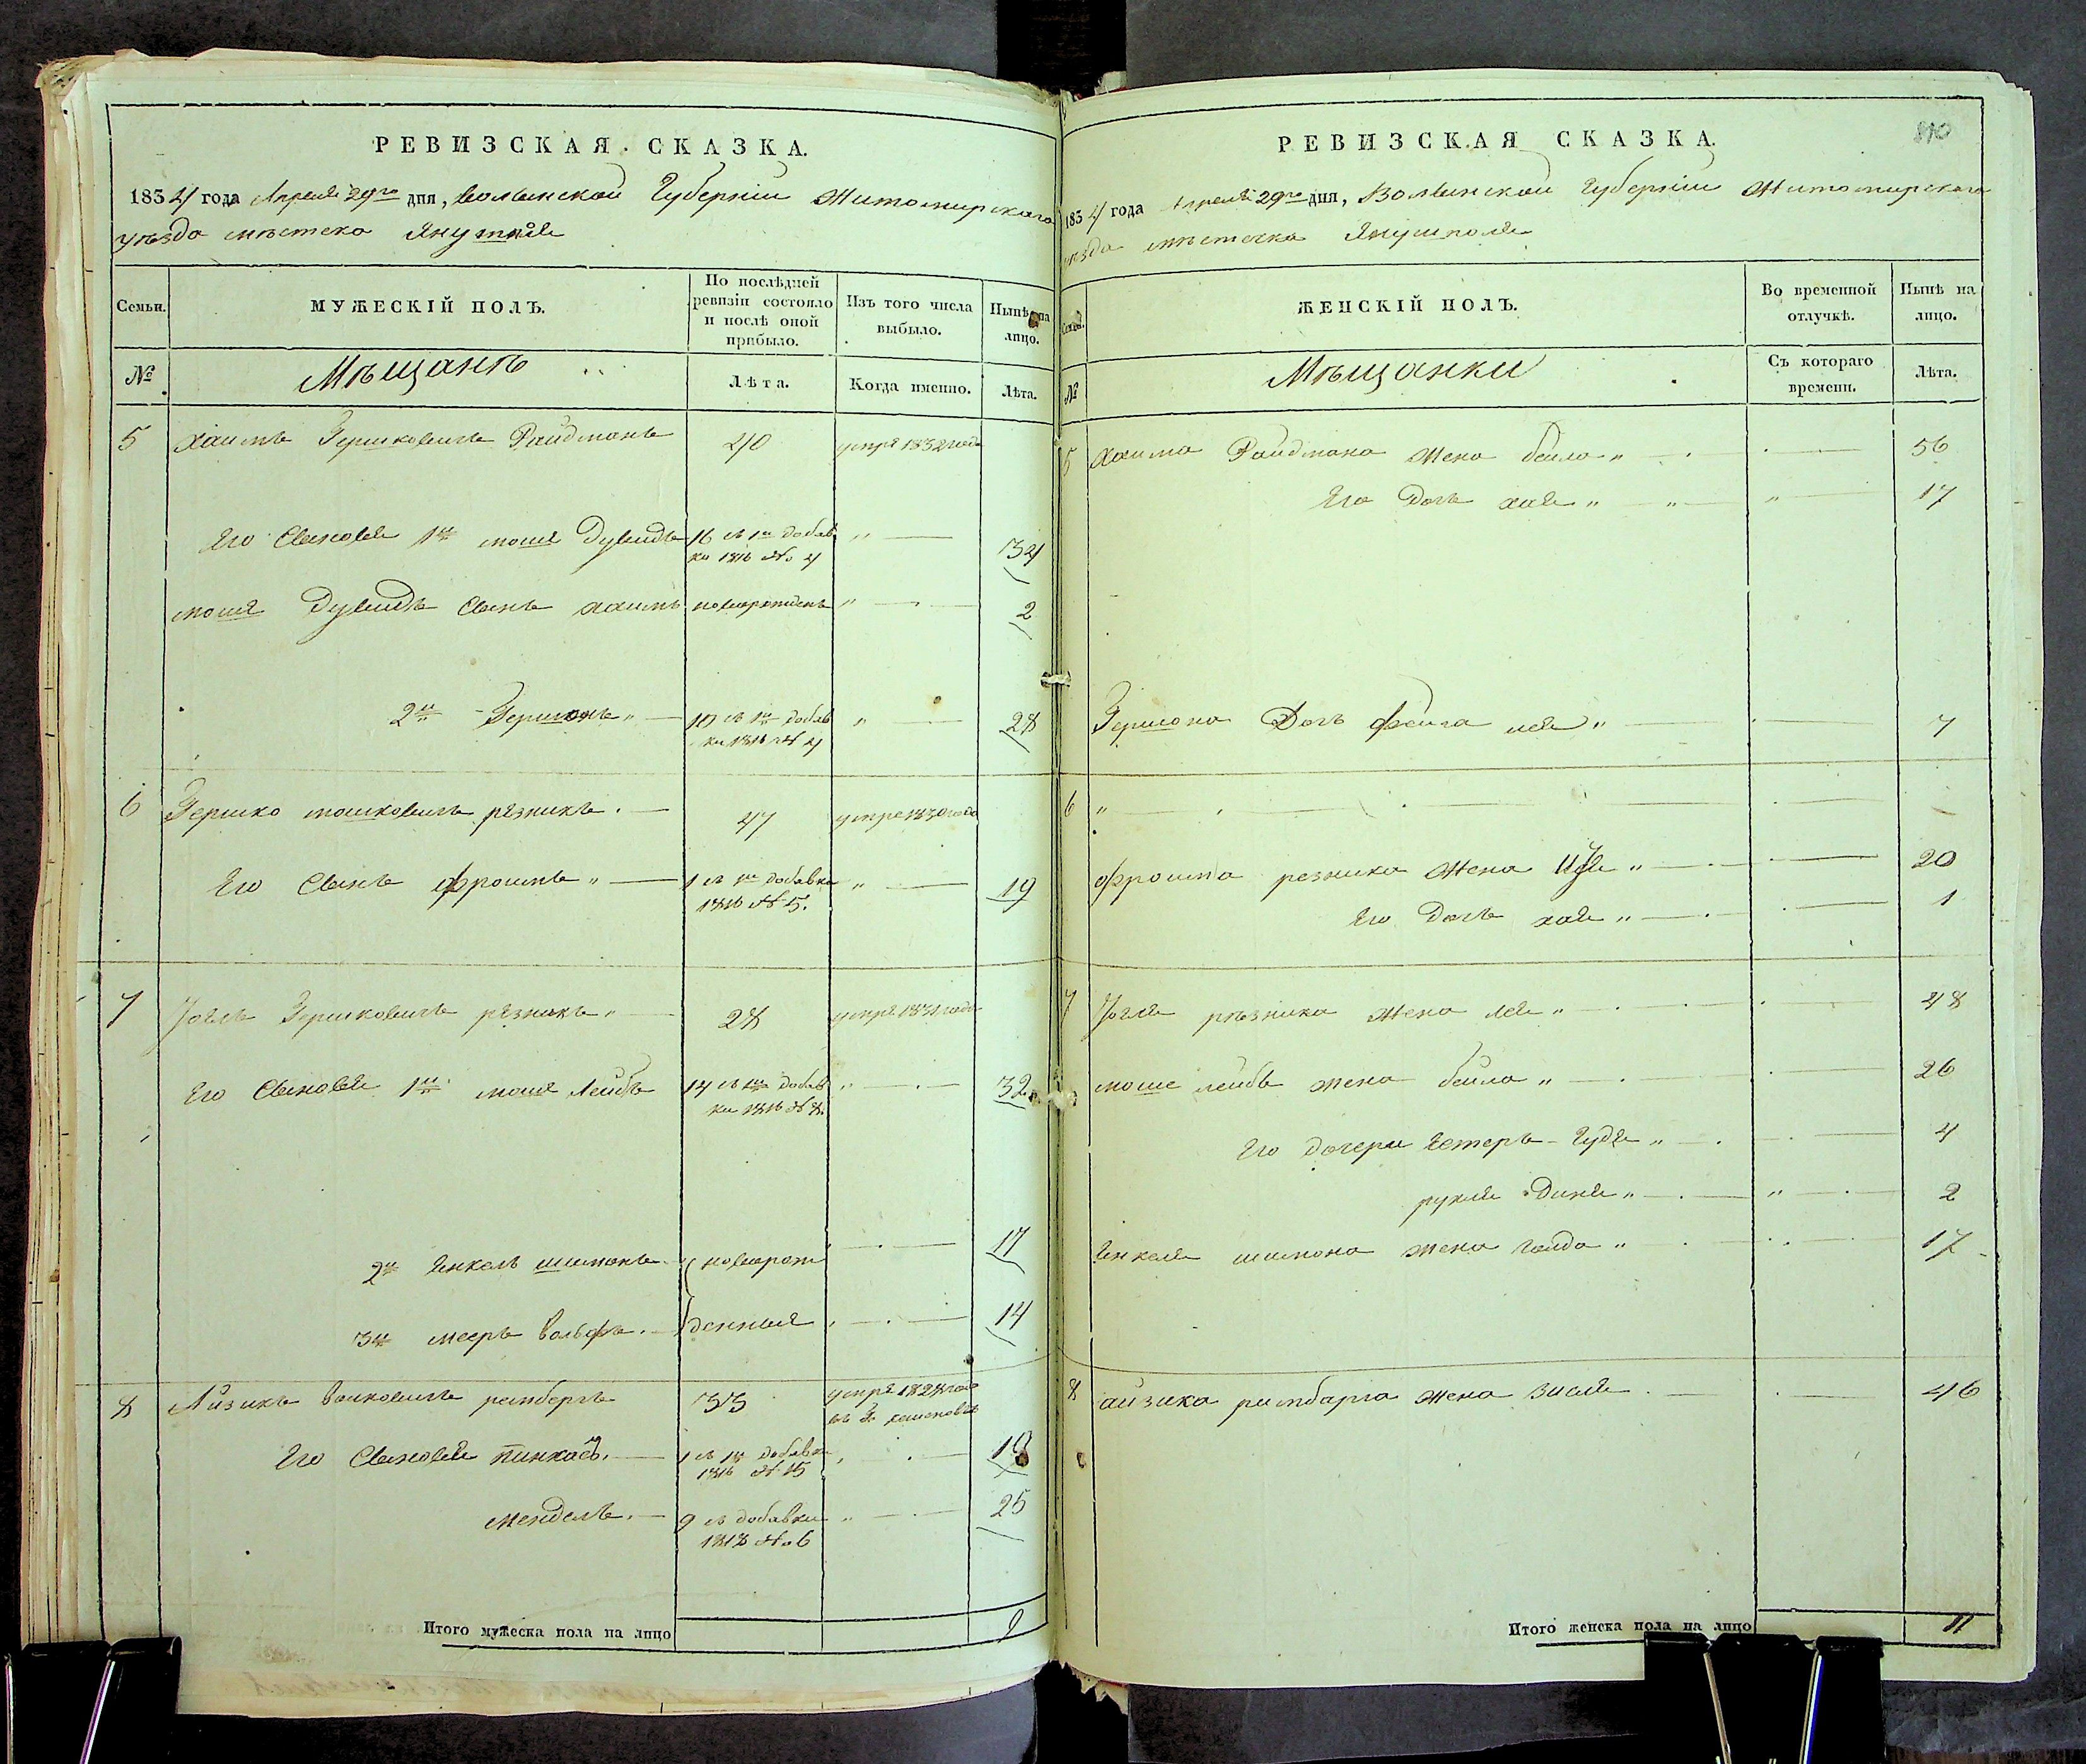 РЕВИЗСКАЯ СКАЗКА.
1834 года Апреля 29го дня, Волынской Губернiи Житомирского
уѣзда мѣстечко Янушполя
Семьи.
МУЖЕСКIЙ ПОЛЪ.
По послѣдней ревизiи состояло и послѣ оной прибыло.
Изъ того числа выбыло.
Нынѣ на лицо.
№
Мѣщанъ
Лѣта.
Когда именно.
Лѣта.
5 Хаимъ Гершковичъ Райдманъ 40 умре 1832 года
Его Сыновья 1й моше Дувидъ 16 съ 1й добавки 1816 № 4 34
моше Дувидъ Сынъ хаимъ новорожденъ 2
2й Гершонъ 10 съ 1й добавки 1816 № 4 28
6 Гершко мошковичъ рѣзникъ 47 умре 1830 года
Его Сынъ фроимъ 1 съ 1й добавки 1816 № 5. 19
7 Iогль Гершковичъ рѣзникъ 28 умре 1831 года
Его Сыновья 1й моше Лейбъ 14 съ 1й добавки 1816 № 8. 32
2й Янкель шимонъ новорож 17
3й мееръ вольфъ денныя 14
8 Айзикъ Волковичъ ритбергъ 33 умре 1828 года
Его Сыновья пинкасъ 1 съ 1й добавки 1816 № 15 18
мендель 9 съ добавки 1818 № 6 25
Итого мужеска пола на лицо 9
РЕВИЗСКАЯ СКАЗКА.
810
1834 года Апреля 29го дня, Волынской Губернiи Житомирского
уѣзда мѣстечка Янушполя
Семьи.
ЖЕНСКIЙ ПОЛЪ.
Во временной отлучкѣ.
Нынѣ на лицо.
№
Мѣщанки
Съ котораго времени.
Лѣта.
5 Хаима Райдмана Жена бейла 56
Его Дочь хая 17
Гершона Дочь фейга лея 7
6
фроима резника Жена 20
Его Дочь хая 1
7 Iогля рѣзника Жена лея 48
моше лейбы жена бейла 26
Его дочери Естеръ Гудя 4
рухля Диня 2
Янкеля шимона жена голда 17
8 айзика ритбарга жена Вися 46
Итого женска пола на лицо 11